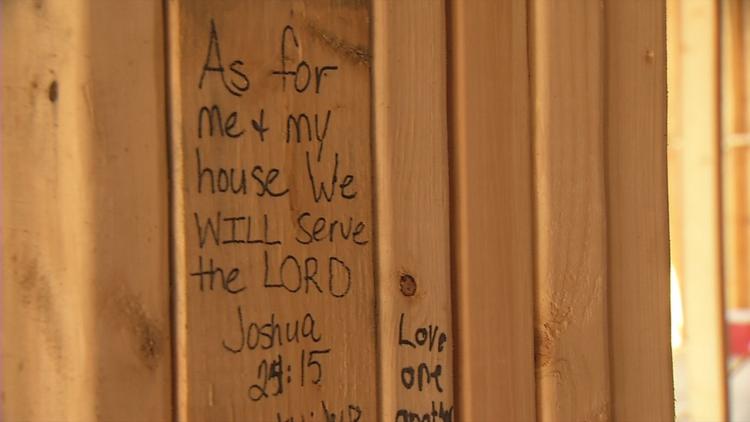 As for
me + my
house We
WILL serve
the LORD
Joshua
24:15
Love
one
another